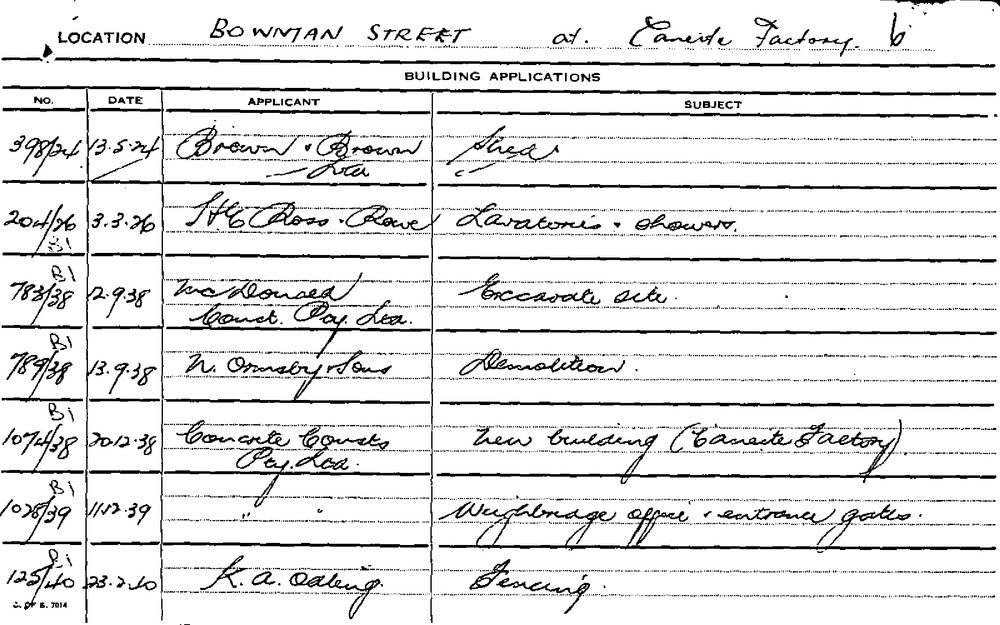 LOCATION BOWMAN STREET at. Caneite Factory. 6
BUILDING APPLICATIONS
NO. DATE APPLICANT SUBJECT
398/24 13.5.24 Brown & Brown Shed
Ltd
204/26 3.3.26 H E Ross & Rowe Lavatories & showers.
B1
B1
783/38 12.9.38 McDonald Excavate site.
Const. Pty. Ltd.
B1
789/38 13.9.38 N. Ormsby & Sons Demolition.
B1
1074/38 20.12.38 Concrete Consts New building (Caneite Factory)
Pty. Ltd.
B1
1028/39 11.12.39 " " Weighbridge office & entrance gates.
B1
125/40 23.2.40 K. A. Fencing.
7014